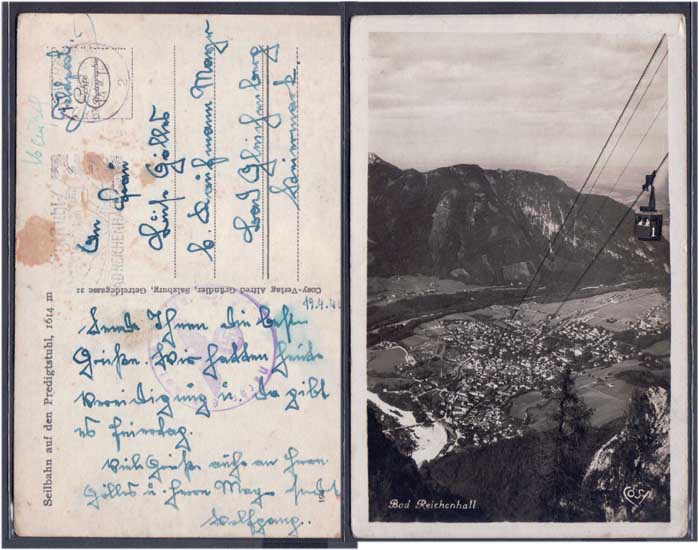 Seilbahn auf den Predigtstuhl, 1614 m
Cosy-Verlag Alfred Gründler, Salzburg, Getreidegasse 22
Feldpost
An Frau
Luise Gölles
b. Kaufmann Mayr
Bad Gleichenberg
Steiermark.
19.4.
Sende Ihnen die besten
Grüße. Wir hatten heute
Vereidigung u. da gibt
es Feiertag.
Viele Grüße auch an Herrn
Gölles u. Herrn Mayr sendet
Wolfgang.
Bad Reichenhall.
Cosy
1